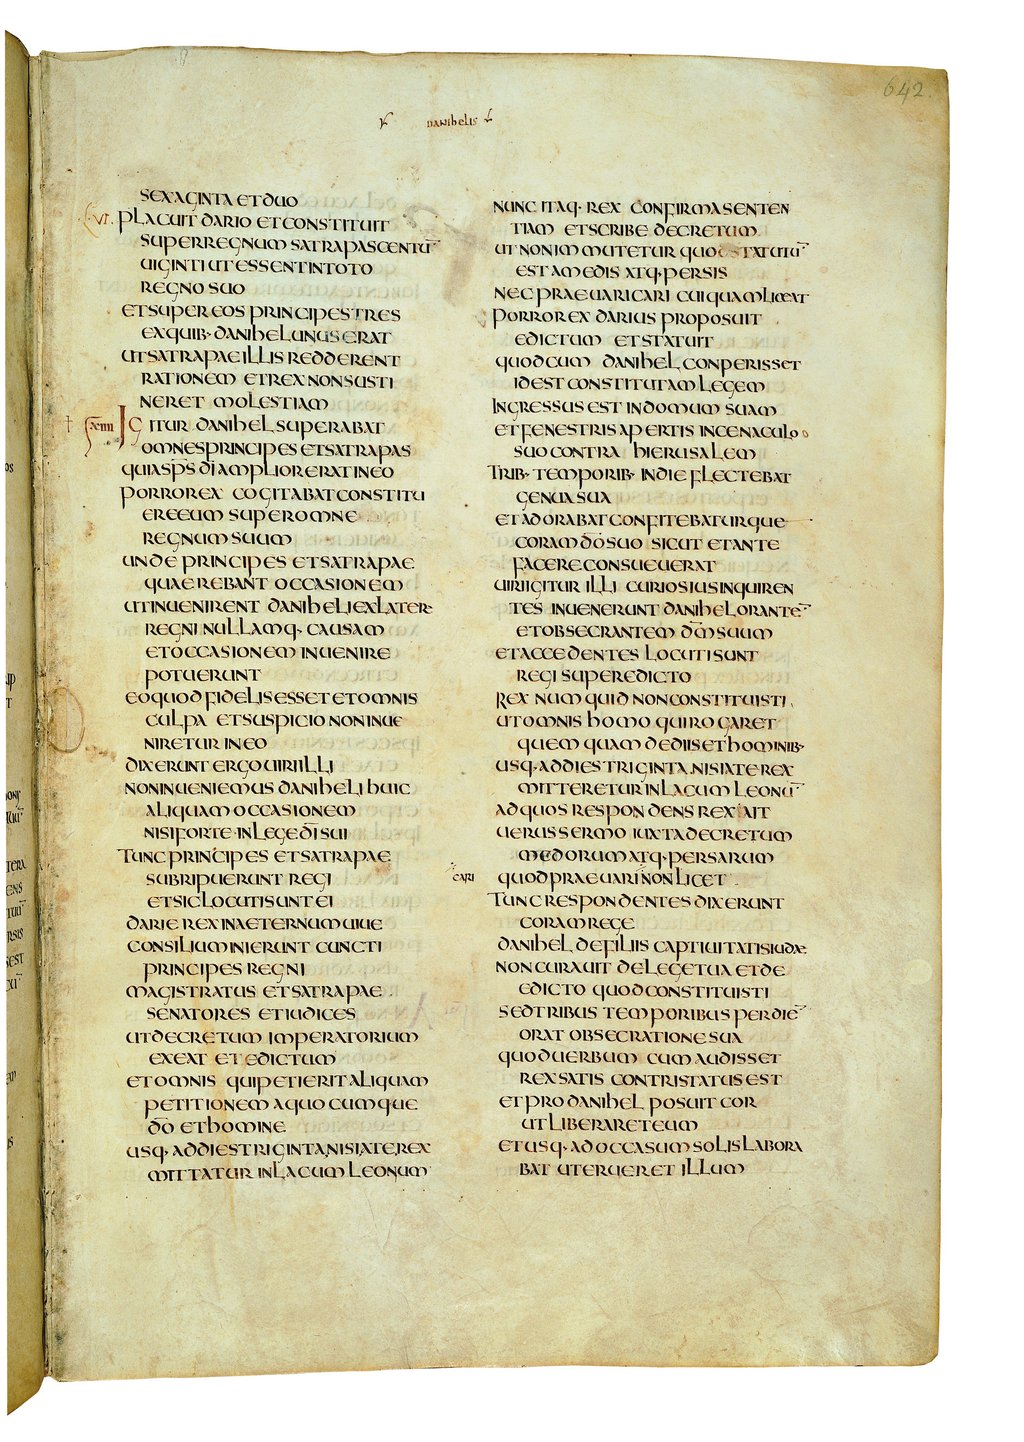 642.
DANIHELIS
SEXAGINTA ET DUO
VI. PLACUIT DARIO ET CONSTITUIT
SUPER REGNUM SATRAPAS CENTŪ
UIGINTI UT ESSENT IN TOTO
REGNO SUO
ET SUPER EOS PRINCIPES TRES
EX QUIB· DANIHEL UNUS ERAT
UT SATRAPAE ILLIS REDDERENT
RATIONEM ET REX NON SUSTI
NERET MOLESTIAM
IGITUR DANIHEL SUPERABAT
OMNES PRINCIPES ET SATRAPAS
QUIA SP̄S D̄I AMPLIOR ERAT IN EO
PORRO REX COGITABAT CONSTITU
ERE EUM SUPER OMNE
REGNUM SUUM
UNDE PRINCIPES ET SATRAPAE
QUAEREBANT OCCASIONEM
UT INUENIRENT DANIHELI EX LATER·
REGNI NULLAMQ· CAUSAM
ET OCCASIONEM INUENIRE
POTUERUNT
EO QUOD FIDELIS ESSET ET OMNIS
CULPA ET SUSPICIO NON INUE
NIRETUR IN EO
DIXERUNT ERGO UIRI ILLI
NON INUENIEMUS DANIHELI HUIC
ALIQUAM OCCASIONEM
NISI FORTE IN LEGE D̄I SUI
TUNC PRINCIPES ET SATRAPAE
SUBRIPUERUNT REGI
ET SIC LOCUTI SUNT EI
DARIE REX IN AETERNUM UIUE
CONSILIUM INIERUNT CUNCTI
PRINCIPES REGNI
MAGISTRATUS ET SATRAPAE
SENATORES ET IUDICES
UT DECRETUM IMPERATORIUM
EXEAT ET EDICTUM
ET OMNIS QUI PETIERIT ALIQUAM
PETITIONEM A QUOCUMQUE
D̄O ET HOMINE
USQ· AD DIES TRIGINTA NISI A TE REX
MITTATUR IN LACUM LEONUM
NUNC ITAQ· REX CONFIRMA SENTEN
TIAM ET SCRIBE DECRETUM
UT NON IMMUTETUR QUOD STATUTŪ
EST A MEDIS ATQ· PERSIS
NEC PRAEUARICARI CUIQUAM LICEAT
PORRO REX DARIUS PROPOSUIT
EDICTUM ET STATUIT
QUOD CUM DANIHEL CONPERISSET
ID EST CONSTITUTAM LEGEM
INGRESSUS EST IN DOMUM SUAM
ET FENESTRIS APERTIS IN CENACULO
SUO CONTRA HIERUSALEM
TRIB· TEMPORIB· IN DIE FLECTEBAT
GENUA SUA
ET ADORABAT CONFITEBATURQUE
CORAM D̄O SUO SICUT ET ANTE
FACERE CONSUEUERAT
UIRI IGITUR ILLI CURIOSIUS INQUIREN
TES INUENERUNT DANIHEL ORANTĒ
ET OBSECRANTEM D̄M SUUM
ET ACCEDENTES LOCUTI SUNT
REGI SUPER EDICTO
REX NUMQUID NON CONSTITUISTI
UT OMNIS HOMO QUI ROGARET
QUEMQUAM DE DIIS ET HOMINIB·
USQ· AD DIES TRIGINTA NISI A TE REX
MITTERETUR IN LACUM LEONŪ
AD QUOS RESPONDENS REX AIT
UERUS SERMO IUXTA DECRETUM
MEDORUM ATQ· PERSARUM
CARI QUOD PRAEUARI NON LICET
TUNC RESPONDENTES DIXERUNT
CORAM REGE
DANIHEL DE FILIIS CAPTIUITATIS IUDAE
NON CURAUIT DE LEGE TUA ET DE
EDICTO QUOD CONSTITUISTI
SED TRIBUS TEMPORIBUS PER DIĒ
ORAT OBSECRATIONE SUA
QUOD UERBUM CUM AUDISSET
REX SATIS CONTRISTATUS EST
ET PRO DANIHEL POSUIT COR
UT LIBERARET EUM
ET USQ· AD OCCASUM SOLIS LABORA
BAT UT ERUERET ILLUM